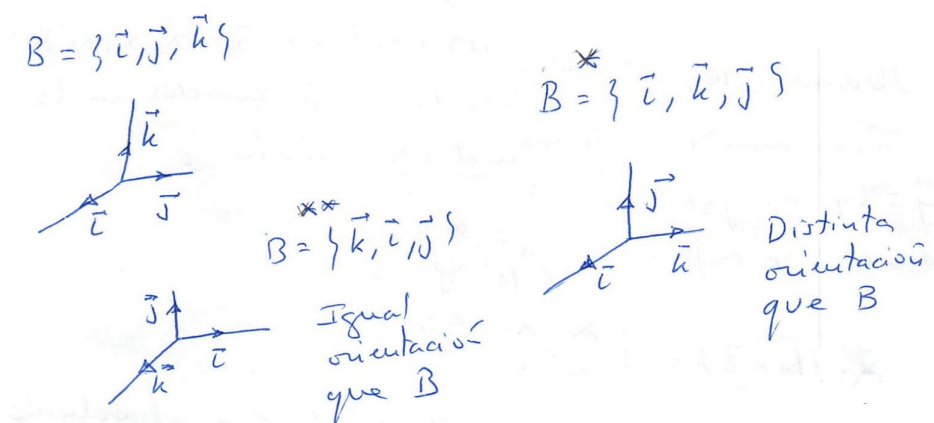 B = { i⃗, j⃗, k⃗ }
k⃗
i⃗
j⃗
B** = { k⃗, i⃗, j⃗ }
j⃗
i⃗
k⃗
Igual
orientación
que B
B* = { i⃗, k⃗, j⃗ }
j⃗
i⃗
k⃗
Distinta
orientación
que B